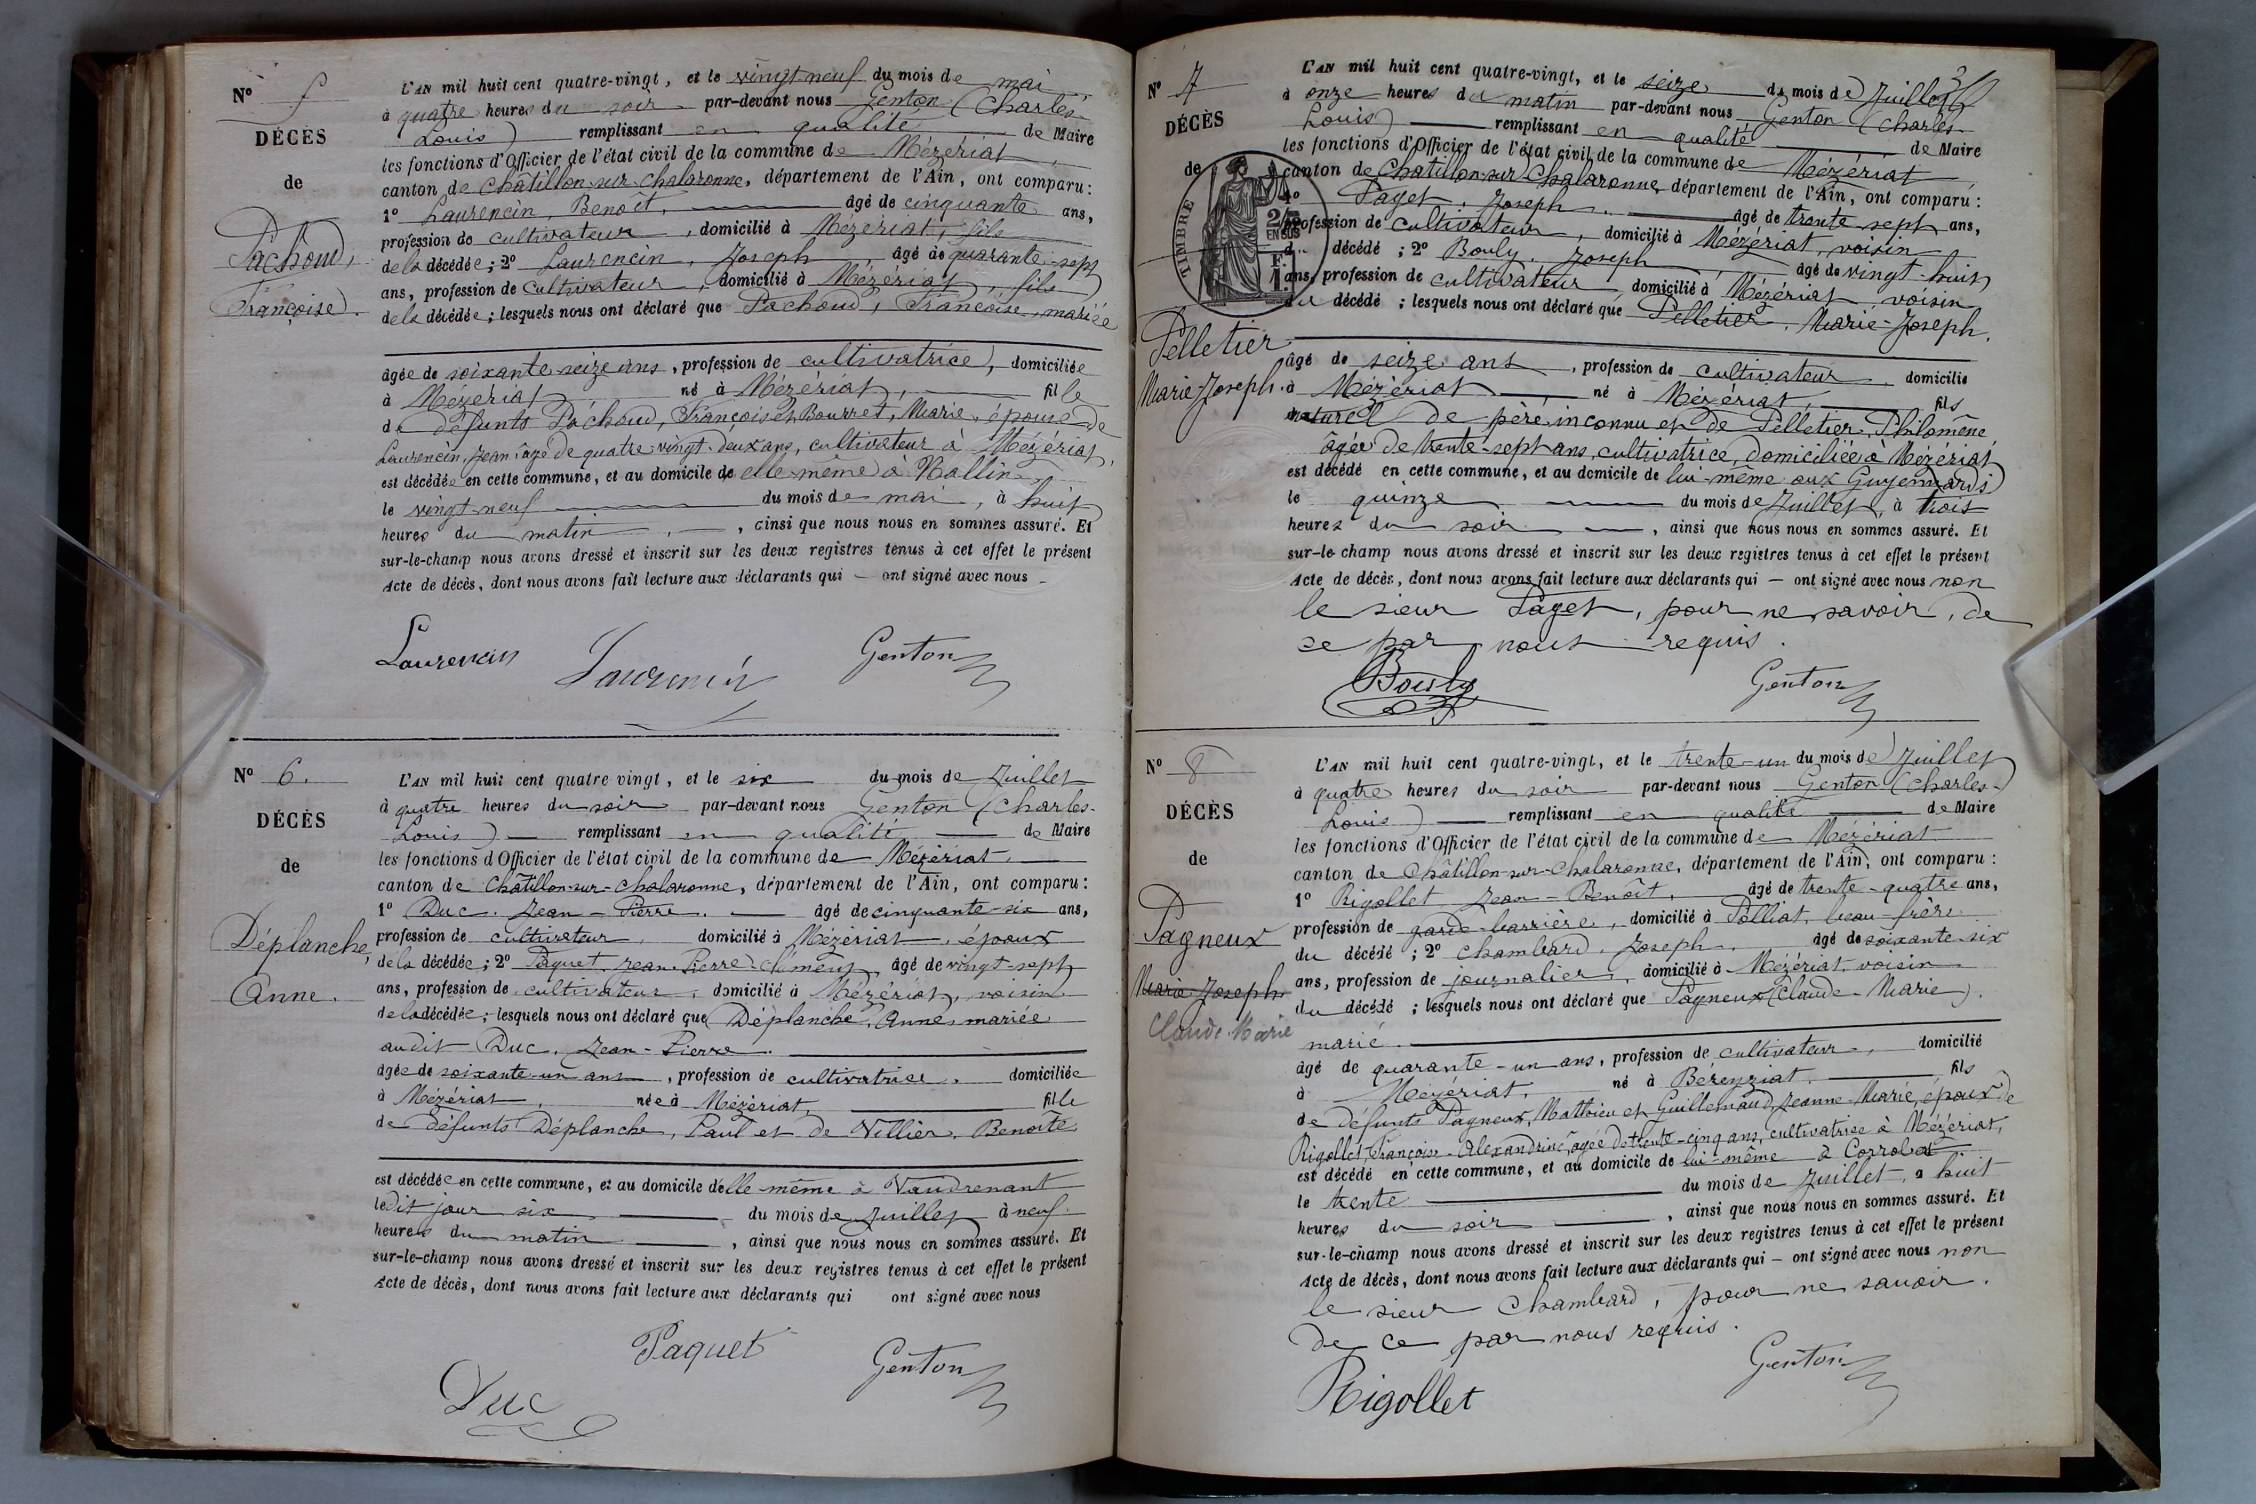 N° 5
DÉCÈS
de
Pachoud,
Françoise.
L'AN mil huit cent quatre-vingt, et le vingt-neuf du mois de mai
à quatre heures du soir par-devant nous Genton (Charles-
Louis) remplissant en qualité de Maire
les fonctions d'Officier de l'état civil de la commune de Mézériat,
canton de Châtillon-sur-Chalaronne, département de l'Ain, ont comparu :
1° Laurencin, Benoît, âgé de cinquante ans,
profession de cultivateur, domicilié à Mézériat, fils
de la décédée ; 2° Laurencin, Joseph, âgé de quarante-sept
ans, profession de cultivateur, domicilié à Mézériat, fils
de la décédée ; lesquels nous ont déclaré que Pachoud, Françoise, mariée
âgée de soixante-seize ans, profession de cultivatrice, domiciliée
à Mézériat né à Mézériat, fille
de défunts Pachoud, François et Bourret, Marie, épouse de
Laurencin, Jean âgé de quatre-vingt-deux ans, cultivateur à Mézériat,
est décédée en cette commune, et au domicile de elle-même à Nallin
le vingt-neuf du mois de mai, à huit
heures du matin, ainsi que nous nous en sommes assuré. Et
sur-le-champ nous avons dressé et inscrit sur les deux registres tenus à cet effet le présent
Acte de décès, dont nous avons fait lecture aux déclarants qui — ont signé avec nous
Laurencin Laurencin Genton
N° 6.
DÉCÈS
de
Déplanche,
Anne.
L'AN mil huit cent quatre-vingt, et le six du mois de Juillet
à quatre heures du soir par-devant nous Genton (Charles-
Louis) remplissant en qualité de Maire
les fonctions d'Officier de l'état civil de la commune de Mézériat.
canton de Châtillon-sur-Chalaronne, département de l'Ain, ont comparu :
1° Duc. Jean-Pierre. âgé de cinquante-six ans,
profession de cultivateur, domicilié à Mézériat, époux
de la décédée ; 2° Paquet, Jean-Pierre-Clément, âgé de vingt-sept
ans, profession de cultivateur, domicilié à Mézériat, voisin
de la décédée ; lesquels nous ont déclaré que Déplanche, Anne, mariée
audit Duc. Jean-Pierre.
âgée de soixante-un ans, profession de cultivatrice. domiciliée
à Mézériat, née à Mézériat, fille
de défunts Déplanche, Paul et de Villier, Benoîte
est décédée en cette commune, et au domicile d'elle-même à Vaudrenant
le dit jour six du mois de Juillet à neuf
heures du matin, ainsi que nous nous en sommes assuré. Et
sur-le-champ nous avons dressé et inscrit sur les deux registres tenus à cet effet le présent
Acte de décès, dont nous avons fait lecture aux déclarants qui ont signé avec nous
Paquet Genton
Duc
N° 7
DÉCÈS
de
TIMBRE
2/10 EN SUS
F. 1.
Pelletier
Marie-Joseph.
L'AN mil huit cent quatre-vingt, et le seize du mois de Juillet
à onze heures du matin par-devant nous Genton (Charles-
Louis) remplissant en qualité de Maire
les fonctions d'Officier de l'état civil de la commune de Mézériat
canton de Châtillon-sur-Chalaronne, département de l'Ain, ont comparu :
1° Paget, Joseph. âgé de trente-sept ans,
profession de cultivateur, domicilié à Mézériat, voisin
du décédé ; 2° Bouly, Joseph, âgé de vingt-huit
ans, profession de cultivateur domicilié à Mézériat, voisin
du décédé ; lesquels nous ont déclaré que Pelletier, Marie-Joseph.
âgé de seize ans, profession de cultivateur domicilié
à Mézériat, né à Mézériat, fils
naturel de père inconnu et de Pelletier, Philomène
âgée de trente-sept ans, cultivatrice, domiciliée à Mézériat
est décédé en cette commune, et au domicile de lui-même aux Guyennards
le quinze du mois de Juillet, à trois
heures du soir, ainsi que nous nous en sommes assuré. Et
sur-le-champ nous avons dressé et inscrit sur les deux registres tenus à cet effet le présent
Acte de décès, dont nous avons fait lecture aux déclarants qui — ont signé avec nous non
le sieur Paget, pour ne savoir, de
ce par nous requis.
Bouly Genton
N° 8
DÉCÈS
de
Pagneux
Marie-Joseph
Claude-Marie
L'AN mil huit cent quatre-vingt, et le trente-un du mois de Juillet
à quatre heures du soir par-devant nous Genton (Charles-
Louis) remplissant en qualité de Maire
les fonctions d'Officier de l'état civil de la commune de Mézériat
canton de Châtillon-sur-Chalaronne, département de l'Ain, ont comparu :
1° Rigollet Jean-Benoît, âgé de trente-quatre ans,
profession de garde-barrière, domicilié à Polliat, beau-frère
du décédé ; 2° Chambard, Joseph, âgé de soixante-six
ans, profession de journalier, domicilié à Mézériat, voisin
du décédé ; lesquels nous ont déclaré que Pagneux (Claude-Marie).
marié.
âgé de quarante-un ans, profession de cultivateur, domicilié
à Mézériat, né à Béreyziat, fils
de défunts Pagneux, Mathieu et Guillemaud, Jeanne-Marie, époux de
Rigollet, Françoise-Alexandrine, âgée de trente-cinq ans, cultivatrice à Mézériat,
est décédé en cette commune, et au domicile de lui-même à Corrobet
le trente du mois de Juillet, à huit
heures du soir, ainsi que nous nous en sommes assuré. Et
sur-le-champ nous avons dressé et inscrit sur les deux registres tenus à cet effet le présent
Acte de décès, dont nous avons fait lecture aux déclarants qui — ont signé avec nous non
le sieur Chambard, pour ne savoir.
de ce par nous requis.
Genton
Rigollet